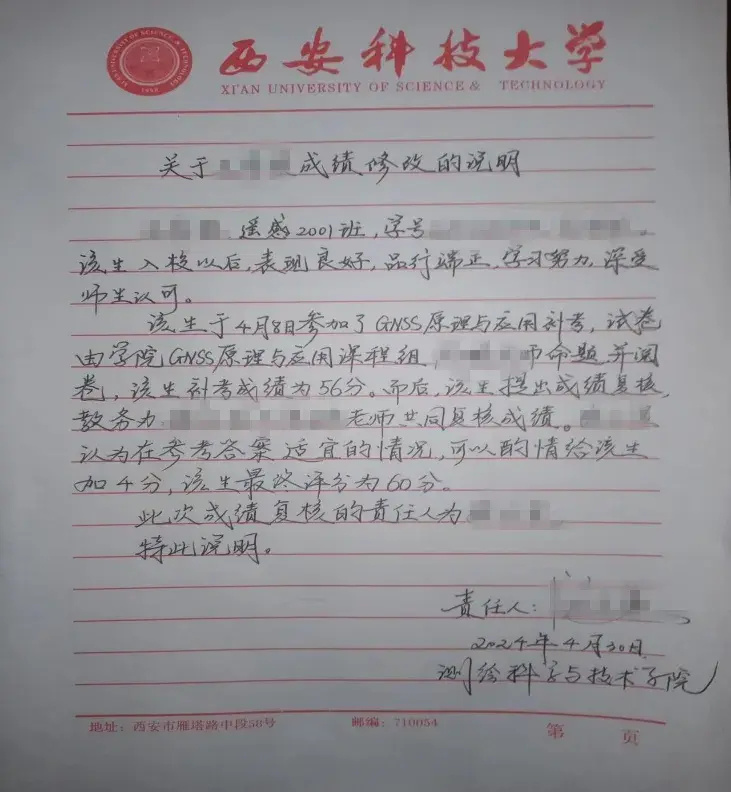 西安科技大学
XI'AN UNIVERSITY OF SCIENCE & TECHNOLOGY
关于 成绩修改的说明
遥感2001班,学号 。
该生入校以后,表现良好,品行端正,学习努力,深受
师生认可。
该生于4月8日参加了GNSS原理与应用补考,试卷
由学院GNSS原理与应用课程组 师命题并阅
卷,该生补考成绩为56分。而后,该生提出成绩复核,
教务办 老师共同复核成绩。
认为在参考答案适宜的情况,可以酌情给该生
加4分,该生最终评分为60分。
此次成绩复核的责任人为 。
特此说明。
责任人:
2024年4月30日
测绘科学与技术学院
地址:西安市雁塔路中段58号 邮编:710054 第 页